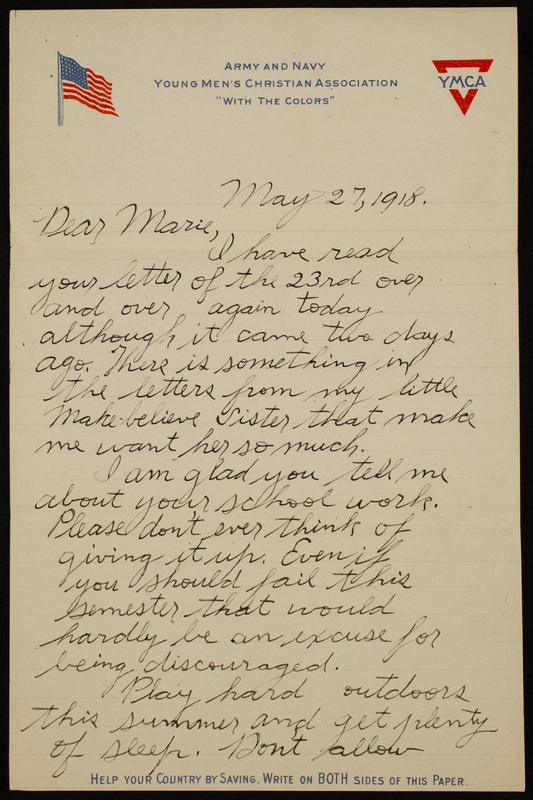 ARMY AND NAVY
YOUNG MEN'S CHRISTIAN ASSOCIATION
"WITH THE COLORS"
YMCA
May 27, 1918.
Dear Marie,
I have read
your letter of the 23rd over
and over again today
although it came two days
ago. There is something in
the letters from my little
Make-believe Sister that make
me want her so much.
I am glad you tell me
about your school work.
Please don't ever think of
giving it up. Even if
you should fail this
semester that would
hardly be an excuse for
being discouraged.
Play hard outdoors
this summer and get plenty
of sleep. Don't allow
HELP YOUR COUNTRY BY SAVING. WRITE ON BOTH SIDES OF THIS PAPER.